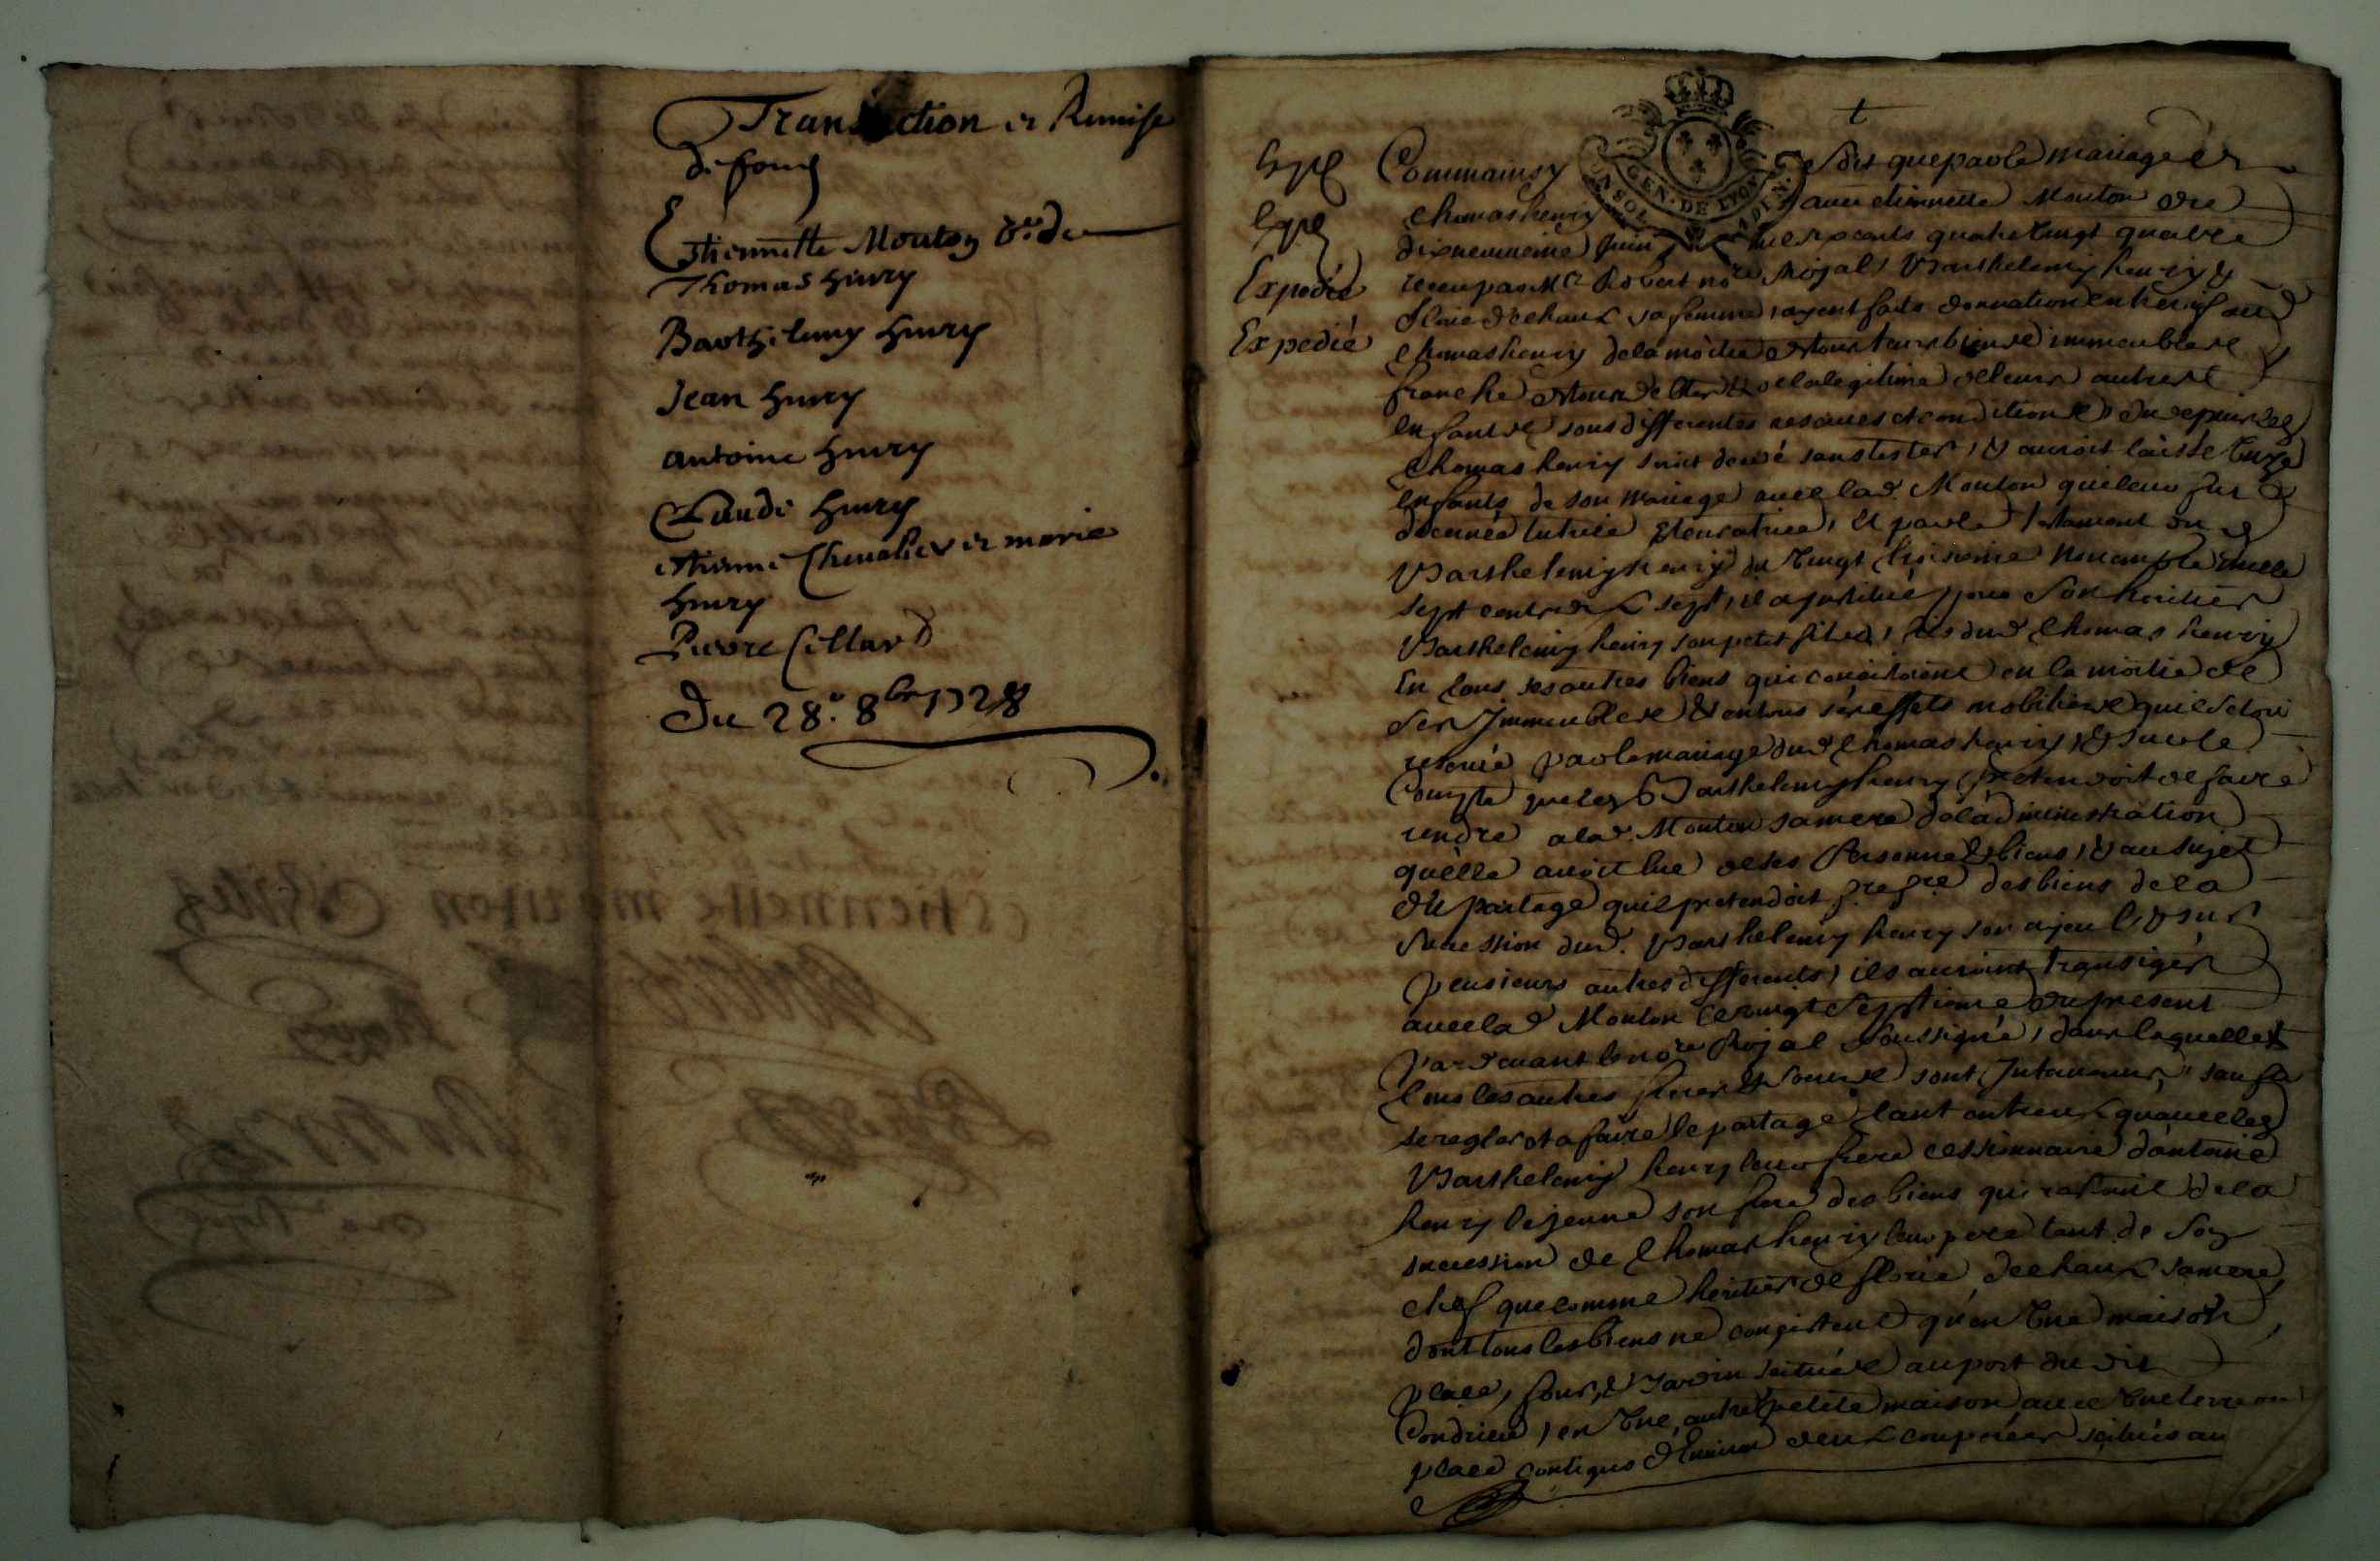 Transaction et Remise
de fond
Estiennette Mouton vve de
Thomas henry
Barthelemy henry
Jean henry
antoine henry
Claude henry
etienne Chevalier et marie
henry
Pierre Cellard
Du 28e 8bre 1728
Expedié
Expedié
GEN. DE LYON
Comme ainsy soit que par le mariage de
thomas henry avec etiennette Mouton du
dixneuvieme juin mil six cents quatre vingt quatre
receu par Me Robert nore Royal, Barthelemy henry &
florie dechaux sa femme, ayent faits donnation entre vifs aud
thomas henry de la moitié de tous leurs biens immeubles
franche de tous debtes & de la legitime de leurs autres
enfants sous differentes reserves et conditions, du depuis led
thomas henry seroit decedé sans tester, & auroit laissé
enfants de son mariage avec lad. Mouton qui leur fut
decernée tutrice & curatrice, et par le testament du d
Barthelemy henry du vingt troisieme novembre mille
sept cents dix sept, il a institué pour son heritier
Barthelemy henry son petit fils, fils dud thomas henry
en tous ses autres biens qui consistoient en la moitié de
ses Immeubles & en tous ses effets mobiliers qu'il s'etoit
reservé par le mariage dud thomas henry, & sur le
compte que led Barthelemy henry pretendoit de faire
rendre a lad. Mouton sa mere de l'administration
quelle avoit eue de ses Personne & biens, & au sujet
du partage qu'il pretendoit des biens de la
succession dud. Barthelemy henry son ayeul, & sur
plusieurs autres differents, ils auroient transigés
avec lad Mouton le vingt septieme du present
pardevant le nore Royal soussigné, dans laquelle
tous les autres freres & soeurs sont Intervenus, sauf a
se regler et a faire le partage tant entreux qu'avec led
Barthelemy henry leur frere cessionnaire d'antoine
henry le jeune son frere des biens qui restent de la
succession de thomas henry leur pere tant de son
chef que comme heritier de florie dechaux sa mere,
dont tous les biens ne consistent qu'en une maison
place, four, & jardin scitués au port du dit
Condrieu, en une autre petite maison avec une terre ou
place contigus d'environ deux couperées scitués au